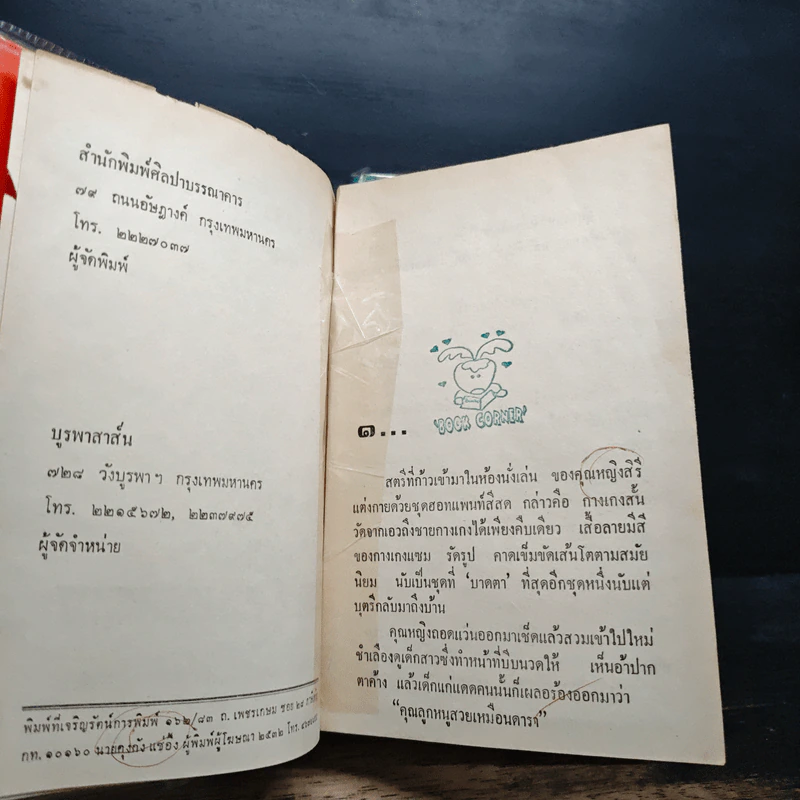 สำนักพิมพ์ศิลปาบรรณาคาร
๗๙ ถนนอัษฎางค์ กรุงเทพมหานคร
โทร. ๒๒๒๗๐๓๗
ผู้จัดพิมพ์
บูรพาสาส์น
๗๒๘ วังบูรพา ฯ กรุงเทพมหานคร
โทร. ๒๒๑๕๖๗๒, ๒๒๓๗๙๗๕
ผู้จัดจำหน่าย
พิมพ์ที่เจริญรัตน์การพิมพ์ ๑๖๒/๘๓ ถ. เพชรเกษม ซอย ๒๘
กท. ๑๐๑๖๐ ผู้พิมพ์ผู้โฆษณา ๒๕๓๒ โทร.
'BOOK CORNER'
๑...
สตรีที่ก้าวเข้ามาในห้องนั่งเล่น ของคุณหญิงสิรี
แต่งกายด้วยชุดฮอทแพนท์สีสด กล่าวคือ กางเกงสั้น
วัดจากเอวถึงชายกางเกงได้เพียงคืบเดียว เสื้อลายมีสี
ของกางเกงแซม รัดรูป คาดเข็มขัดเส้นโตตามสมัย
นิยม นับเป็นชุดที่ 'บาดตา' ที่สุดอีกชุดหนึ่งนับแต่
บุตรีกลับมาถึงบ้าน
คุณหญิงถอดแว่นออกมาเช็ดแล้วสวมเข้าไปใหม่
ชำเลืองดูเด็กสาวซึ่งทำหน้าที่บีบนวดให้ เห็นอ้าปาก
ตาค้าง แล้วเด็กแก่แดดคนนั้นก็เผลอร้องออกมาว่า
"คุณลูกหนูสวยเหมือนดารจ"